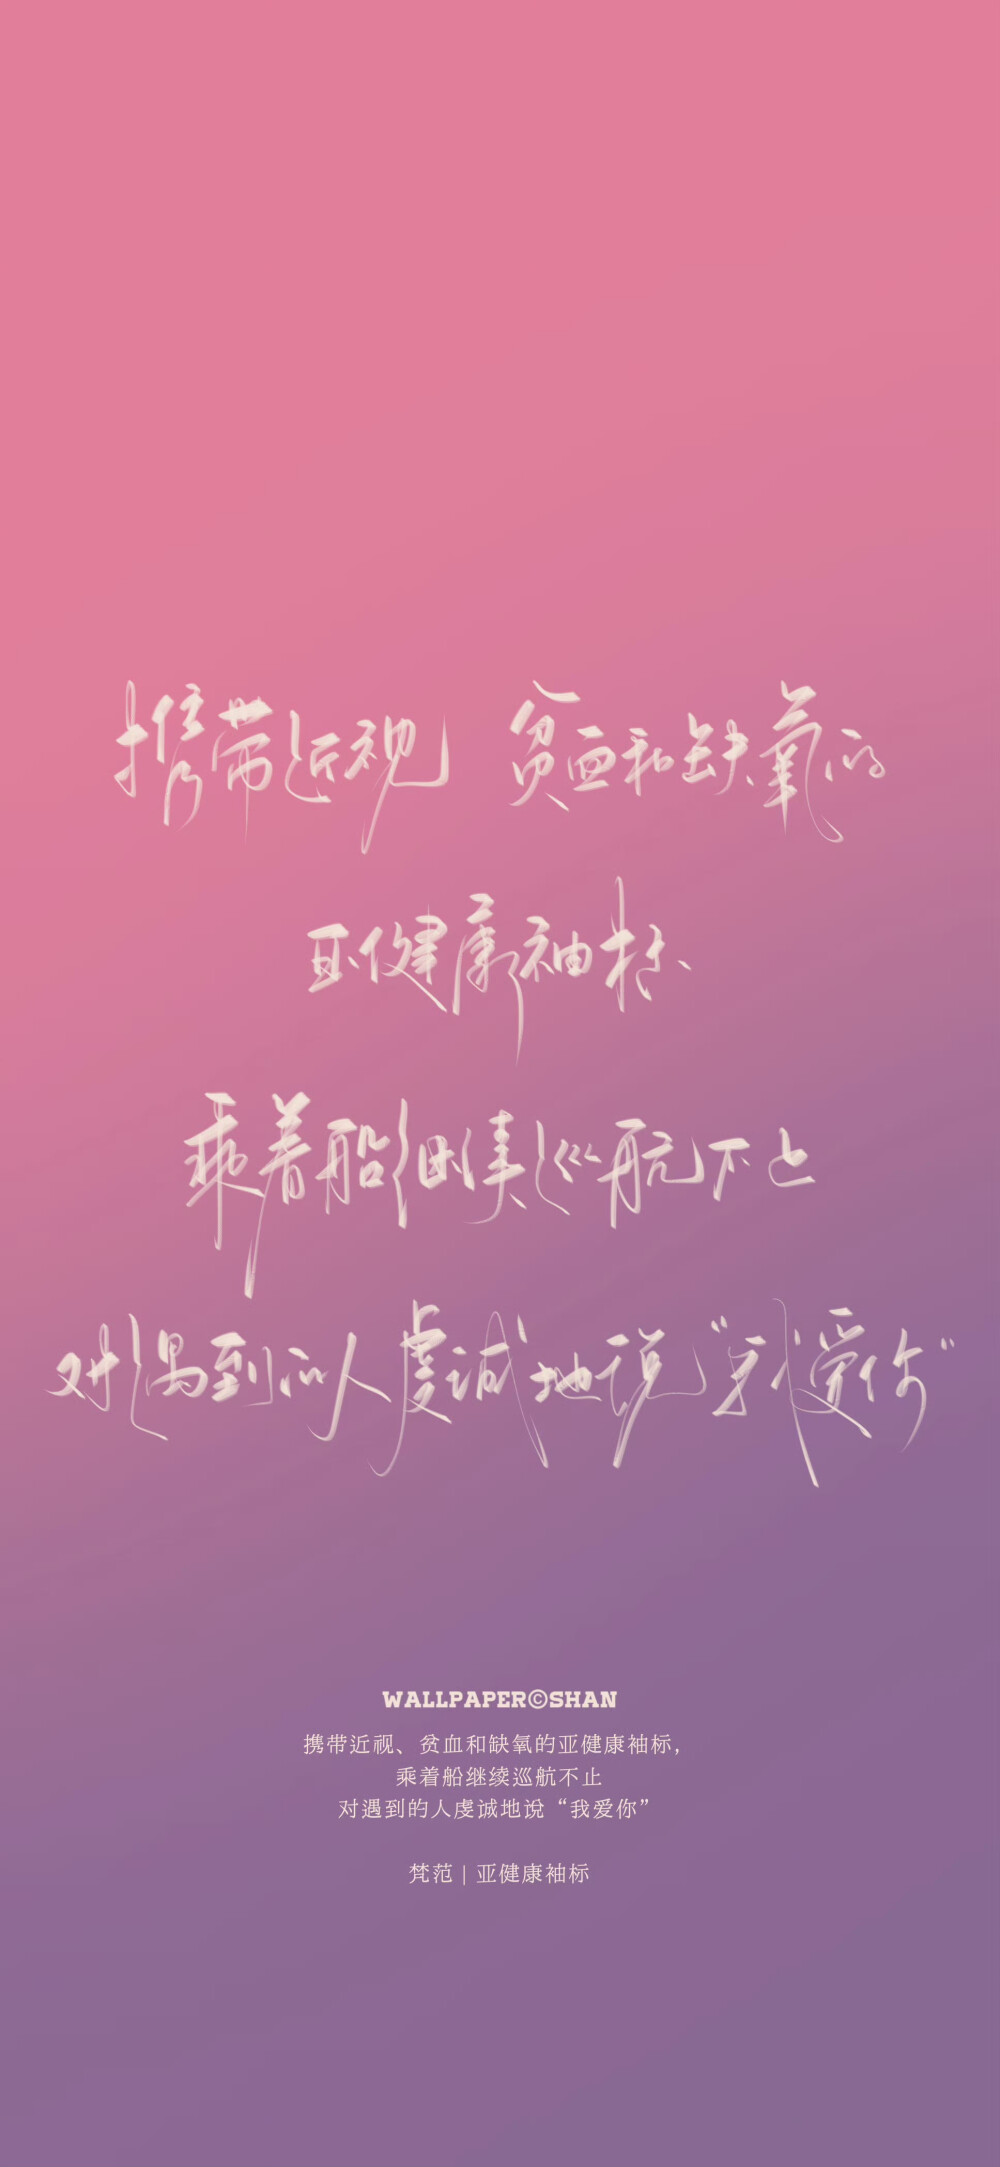 携带近视 贫血和缺氧的
亚健康袖标
乘着船继续巡航不止
对遇到的人虔诚地说“我爱你”
WALLPAPER©SHAN
携带近视、贫血和缺氧的亚健康袖标，
乘着船继续巡航不止
对遇到的人虔诚地说“我爱你”
梵范 | 亚健康袖标